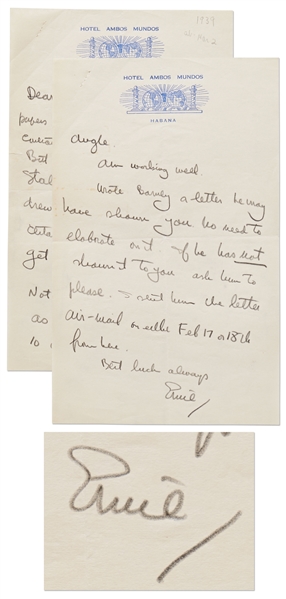 HOTEL AMBOS MUNDOS
1939
Dear
papers
But
drew
get
Not
as
to
HOTEL AMBOS MUNDOS
HABANA
angle.
Am working well.
Wrote Barney a letter he may
have shown you. No need to
elaborate on it. If he has not
shown it to you ask him to
please. I sent him the letter
air-mail on either Feb 17 or 18th
from here.
Best luck always
Ernie
Ernie